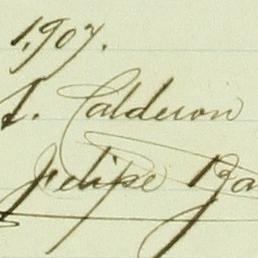 1907.
A. Calderon
Felipe